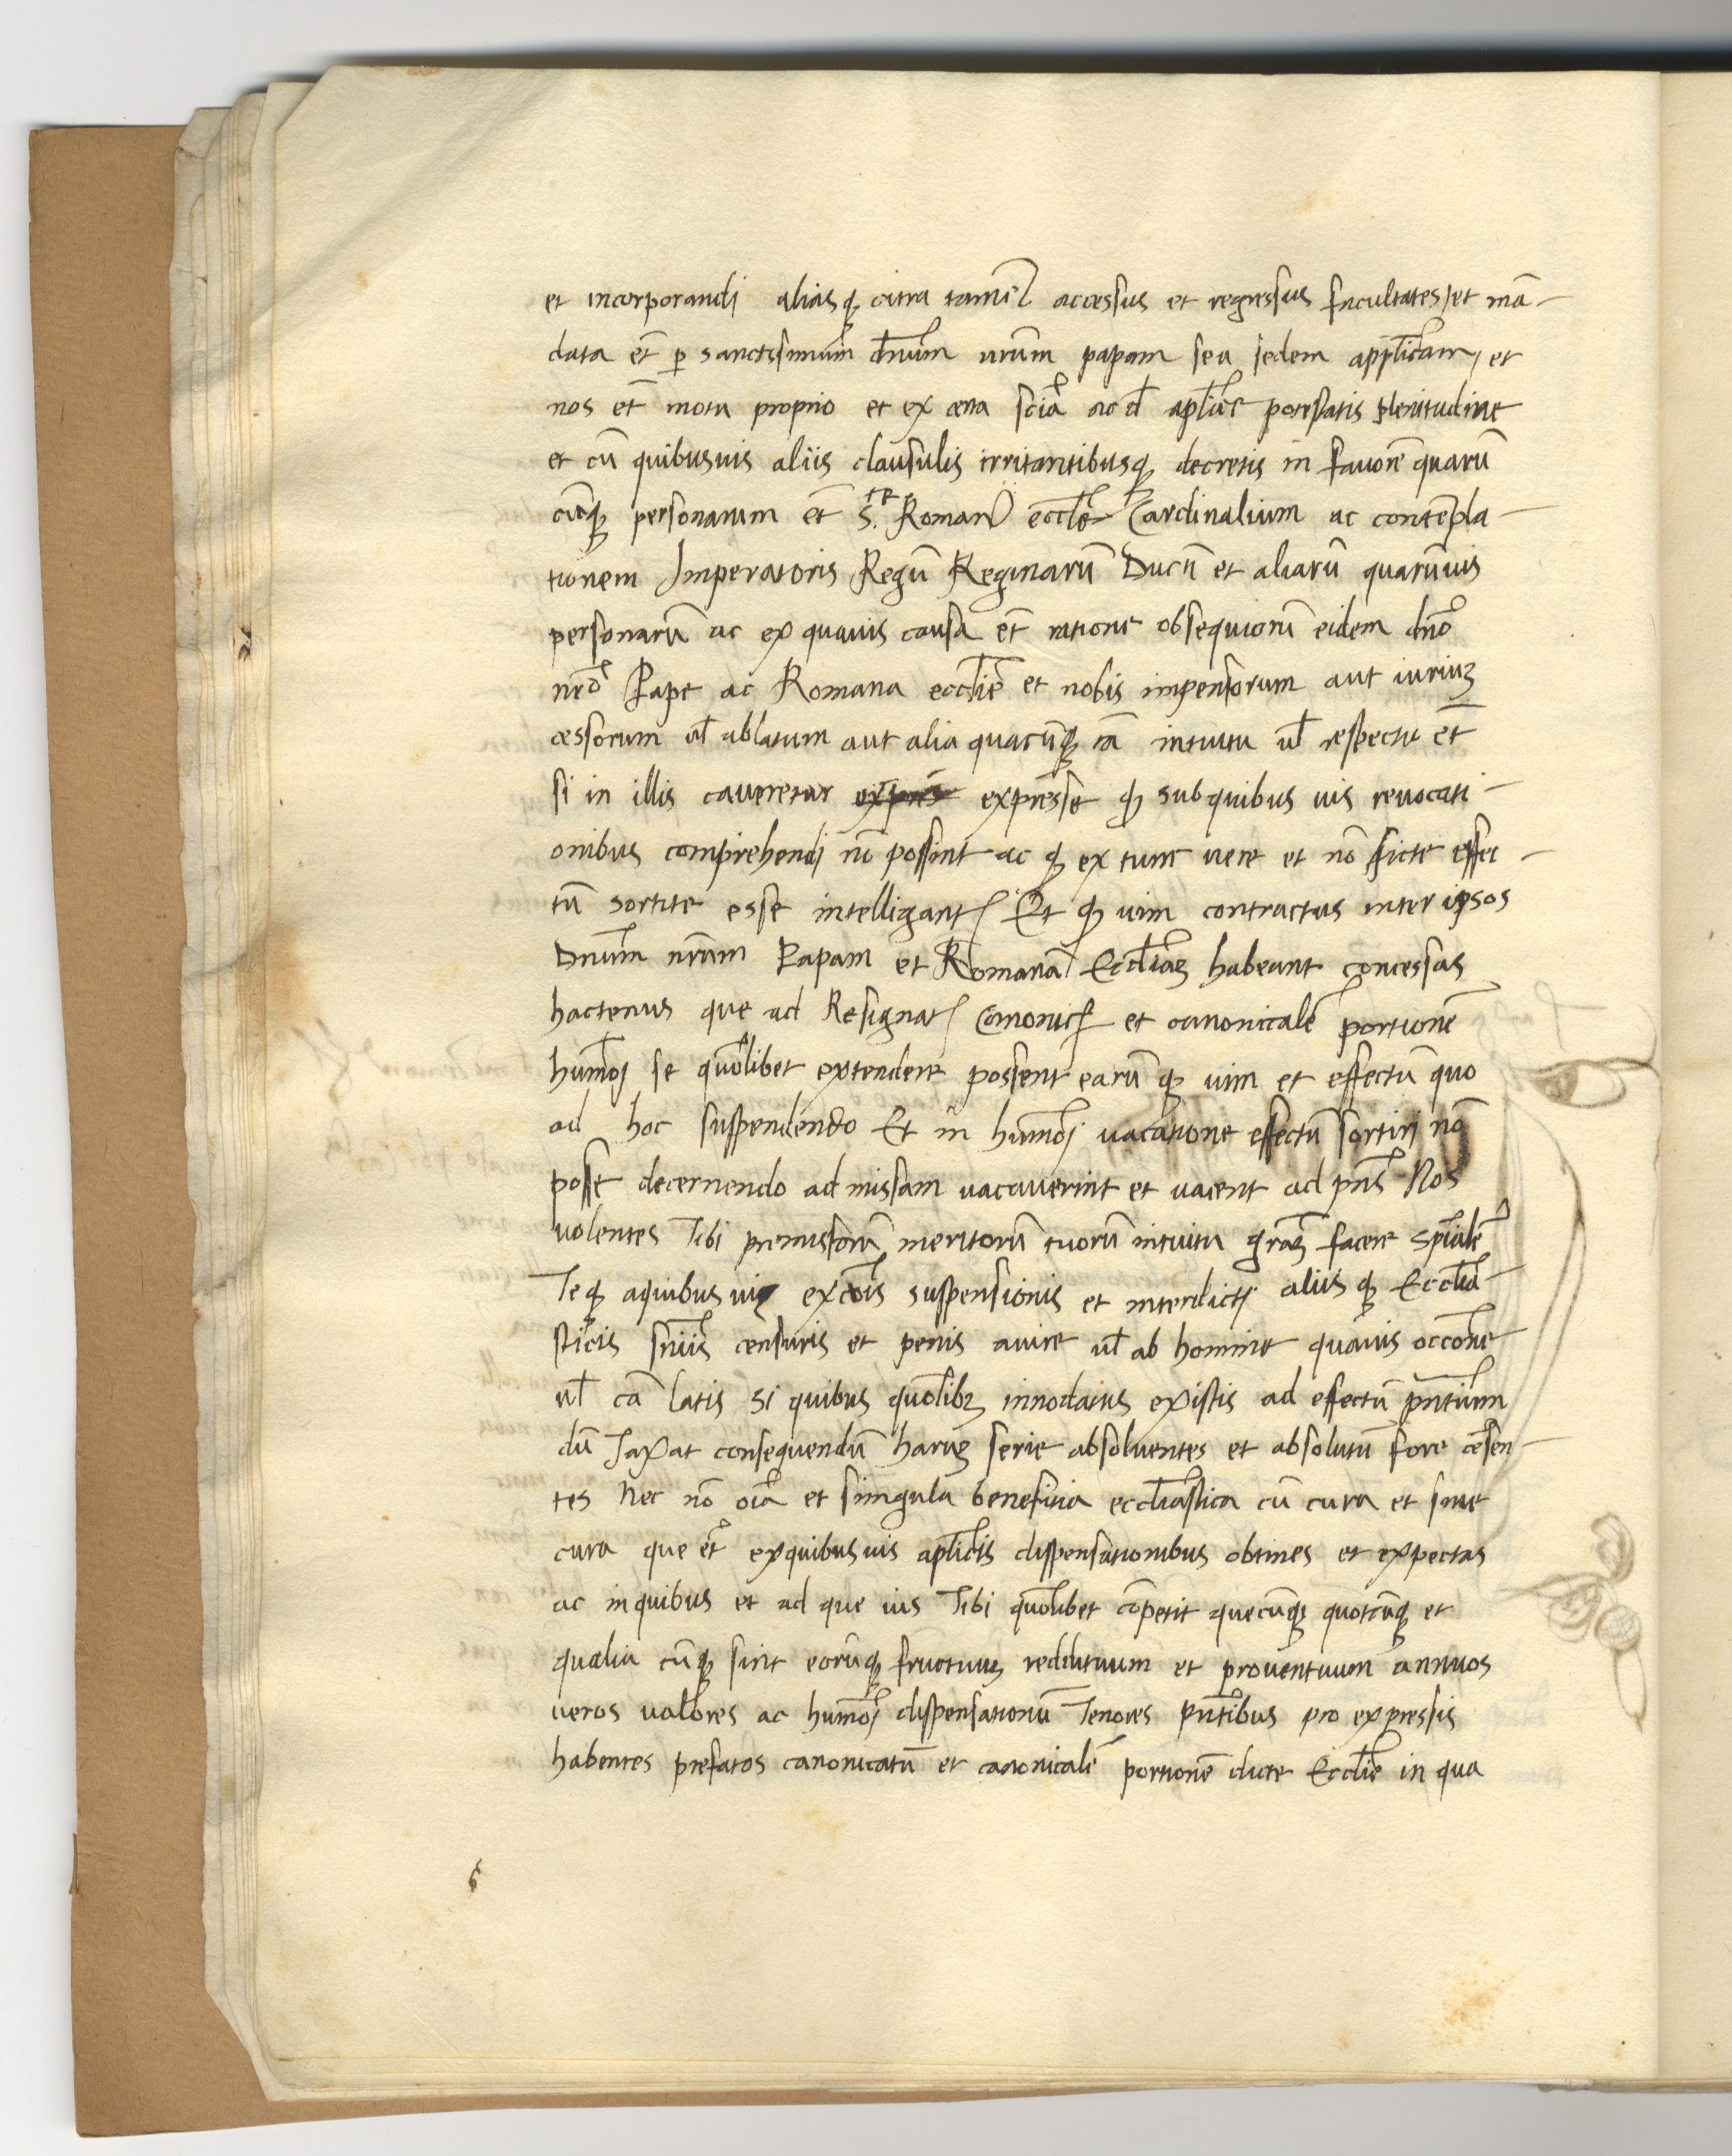 et incorporandi aliasq citra tamē accessus et regressus facultates et mā-
data et̄ p sanctissimum dn̄um nr̄um papam seu sedem applicam, et
nos et̄ motu proprio et ex certa sciā ac d apl̄ice potestatis plenitudine
et cū quibusuis aliis clausulis irritantibusq decretis in fauorē quarū
cūq personarum et̄ S.te Roman eccl̄e Cardinalium ac contēpla-
tionem Imperatoris Regū Reginarū Ducū et aliarū quarūuis
personarū ac ex quauis causa et̄ ratione obsequiorū eidem dn̄o
nr̄o Pape ac Romana eccl̄ie et nobis impensorum aut iuriuȝ
cessorum ul ablatum aut alia quacūq cā intuitu ul respectu et̄
si in illis caueretur expresse q subquibus uis reuocati-
onibus comprehendi nō possint ac q ex tunc uere et nō ficte effec-
tū sortite esse intelligant Et q uim contractus inter ipsos
Dn̄um nr̄um Papam et Romanā Eccl̄iaȝ habeant concessas
hactenus que ad Resignat Canonic et canonicalē portionē
hum̄oj se quol̄ibet extendere possent earū q uim et effectū quo
ad hoc suspendendo Et in hum̄oj uacatione effectū sortirj nō
posse decernendo ad missam uacauerint et uacent ad pn̄s Nos
uolentes Tibi premissorū meritorū tuorū intuitu grāȝ facere spīalē
Teq aquibusuis excōis suspensionis et interdictj aliis q Eccl̄ia-
sticis sn̄iis censuris et penis aiure ul ab homine quauis occōne
ul cā latis si quibus quol̄ibȝ innodatus existis ad effectū pn̄tium
dū Taxat consequendū haruȝ serie absoluentes et absolutū fore cēsen-
tes Nec nō oīa et singula beneficia eccl̄iastica cū cura et sine
cura que et̄ exquibusuis apl̄icis dispensationibus obtines et expectas
ac inquibus et ad que ius Tibi quol̄ibet cōpetit quecūq quotcūq et
qualia cūq sint eorūq fructuuȝ reddituum et prouentuum annuos
ueros ualores ac hum̄oj dispensationū Tenores pn̄tibus pro expressis
habentes prefatos canonicatū et canonicalē portionē dicte Eccl̄ie in qua